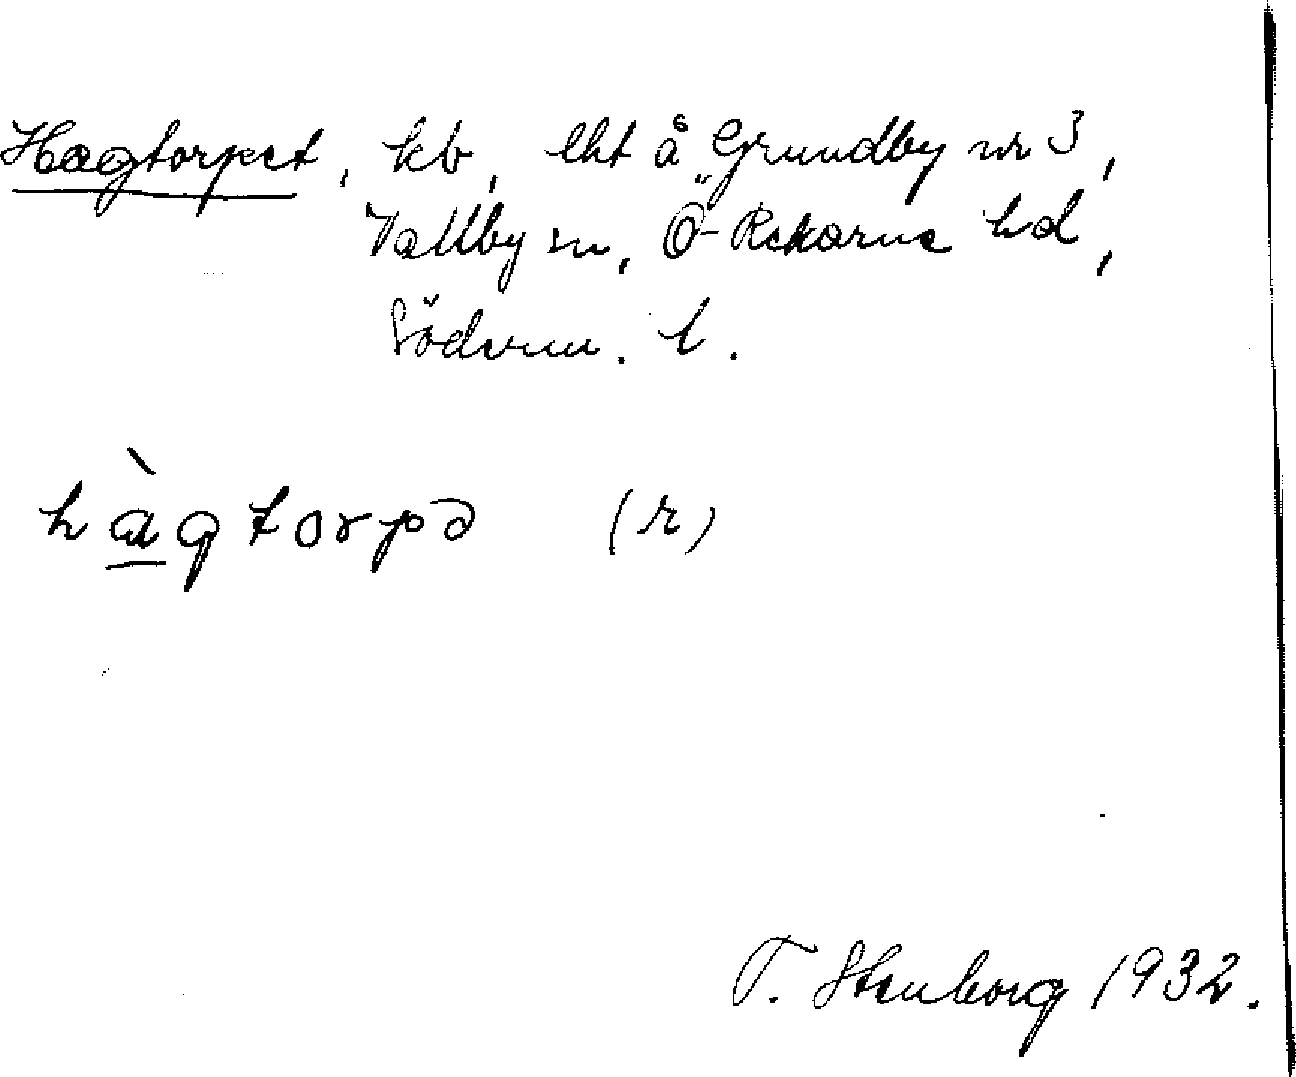 Hagtorpet, kb, lht å Grundby nr 3,
Vallby sn, Ö-Rekarne hd,
Söderm. l.
hàgtorpə (r)
T. Stenborg 1932.